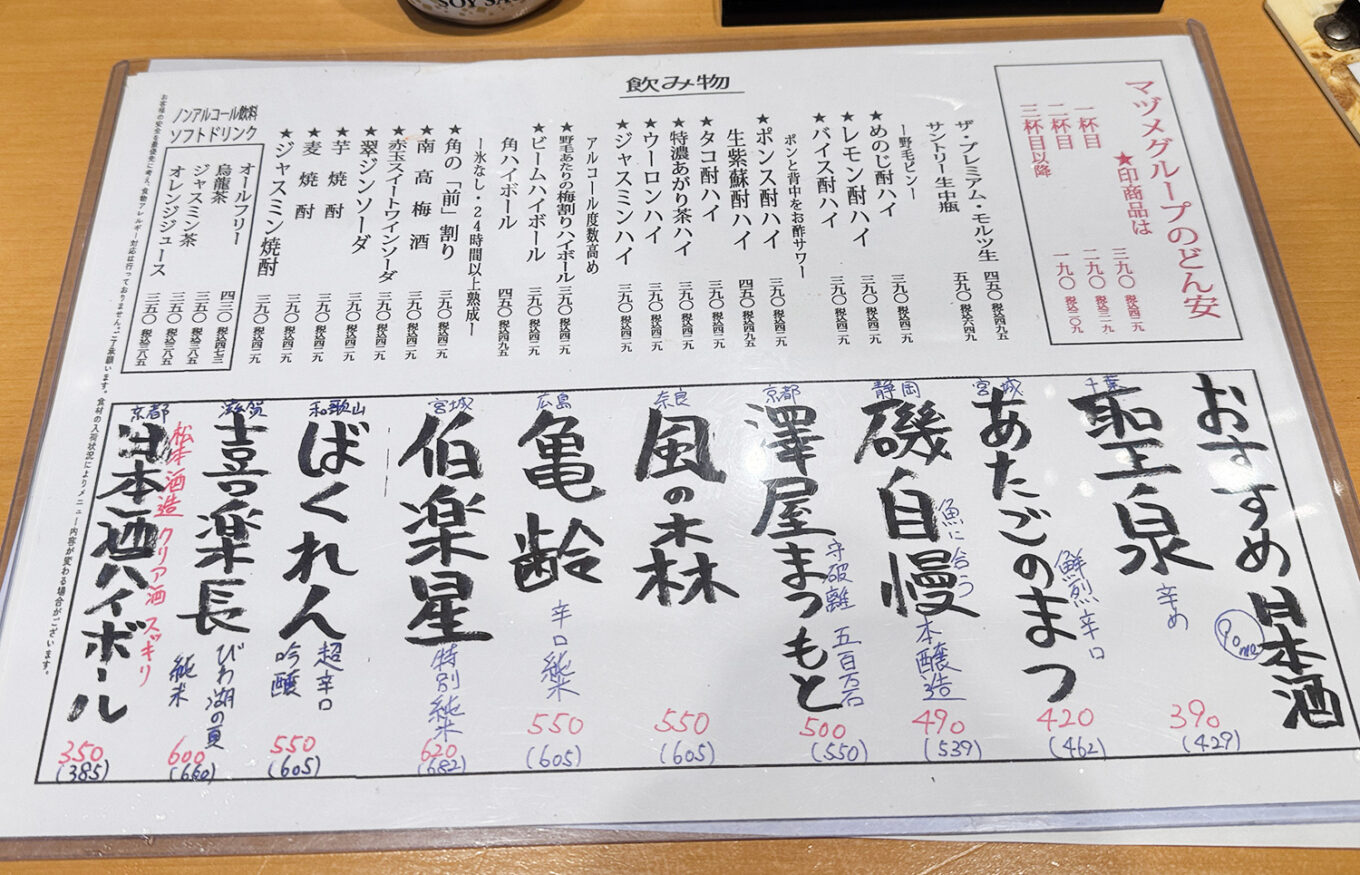 SOY SAUCE
飲み物
マヅメグループのどん安
★印商品は
一杯目 三九〇 税込四二九
二杯目 二九〇 税込三一九
三杯目以降 一九〇 税込二〇九
ザ・プレミアム・モルツ生 四五〇 税込四九五
サントリー生中瓶 五九〇 税込六四九
ー野毛ビンー 三九〇 税込四二九
★めのじ酎ハイ 三九〇 税込四二九
★レモン酎ハイ 三九〇 税込四二九
★バイス酎ハイ
ポンと背中をお酢サワー
★ポンス酎ハイ 三九〇 税込四二九
生紫蘇酎ハイ 四五〇 税込四九五
★タコ酎ハイ 三九〇 税込四二九
★特濃あがり茶ハイ 三九〇 税込四二九
★ウーロンハイ 三九〇 税込四二九
★ジャスミンハイ 三九〇 税込四二九
アルコール度数高め
★野毛あたりの梅割りハイボール 三九〇 税込四二九
★ビームハイボール 三九〇 税込四二九
角ハイボール 四五〇 税込四九五
ー氷なし・24時間以上熟成ー
★角の「前」割り 三九〇 税込四二九
★南高梅酒 三九〇 税込四二九
★赤玉スイートワインソーダ 三九〇 税込四二九
★翠ジンソーダ 三九〇 税込四二九
★芋焼酎 三九〇 税込四二九
★麦焼酎 三九〇 税込四二九
★ジャスミン焼酎 三九〇 税込四二九
ノンアルコール飲料
ソフトドリンク
オールフリー 四三〇 税込四七三
烏龍茶 三五〇 税込三八五
ジャスミン茶 三五〇 税込三八五
オレンジジュース 三五〇 税込三八五
お客様の安全を最優先に考え、食物アレルギー対応は行っておりません。ご了承願います。食材の入荷状況によりメニュー内容が変わる場合がございます。
おすすめ日本酒
90ml
千葉 聖泉 辛め 390 (429)
宮城 あたごのまつ 鮮烈辛口 420 (462)
静岡 磯自慢 魚に合う 本醸造 490 (539)
京都 澤屋まつもと 守破離 五百万石 500 (550)
奈良 風の森 550 (605)
広島 亀齢 辛口純米 550 (605)
宮城 伯楽星 特別純米 620 (682)
和歌山 ばくれん 超辛口 吟醸 550 (605)
滋賀 喜楽長 びわ湖の夏 純米 600 (660)
京都 日本酒ハイボール 松本酒造 クリア酒 スッキリ 350 (385)